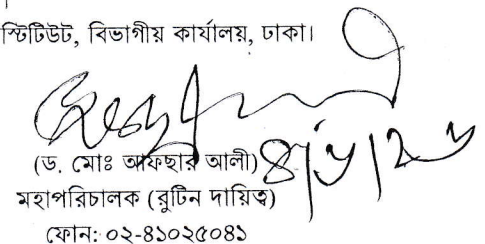 স্টিটিউট, বিভাগীয় কার্যালয়, ঢাকা।
(ড. মোঃ আফছার আলী)
মহাপরিচালক (রুটিন দায়িত্ব)
ফোন: ০২-৪১০২৫০৪১